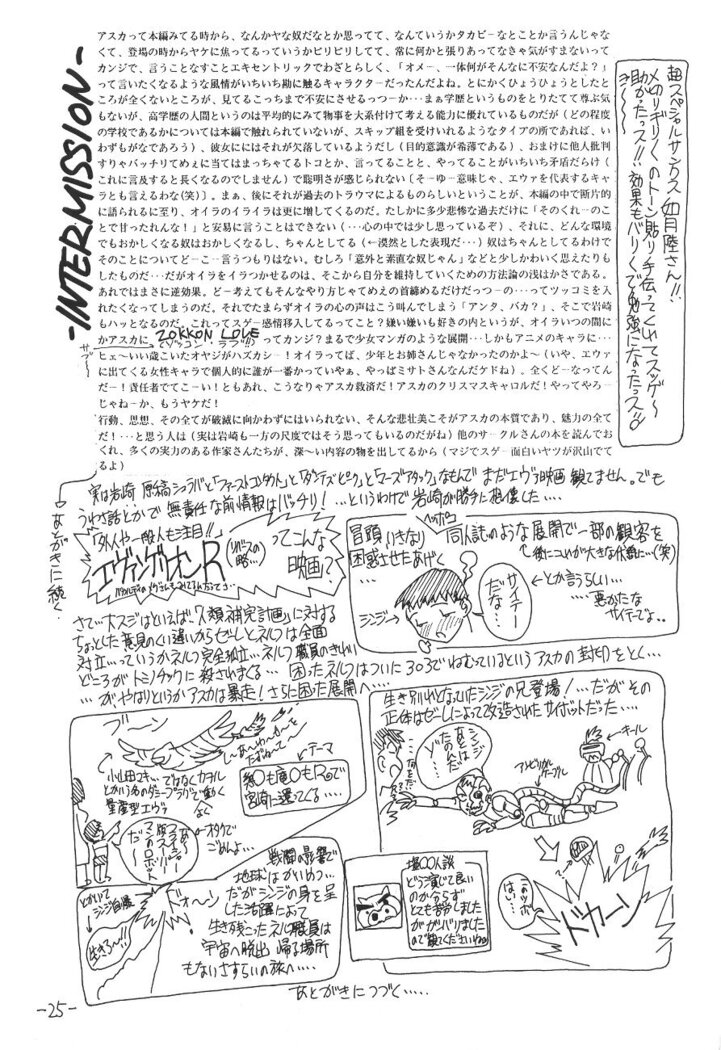 -INTERMISSION-
アスカって本編みてる時から、なんかヤな奴だなとか思ってて、なんていうかタカビーなとことか言うんじゃな
くて、登場の時からヤケに焦ってるっていうかピリピリしてて、常に何かと張りあってなきゃ気がすまないって
カンジで、言うことなすことエキセントリックでわざとらしく、「オメー、一体何がそんなに不安なんだよ？」
って言いたくなるような風情がいちいち勘に触るキャラクターだったんだよね。とにかくひょうひょうとしたと
ころが全くないところが、見てるこっちまで不安にさせるっつーか…まぁ学歴というものをとりたてて尊ぶ気
もないが、高学歴の人間というのは平均的にみて物事を大系付けて考える能力に優れているものだが（どの程度
の学校であるかについては本編で触れられていないが、スキップ組を受けいれるようなタイアの所であれば、い
わずもがなであろう）、彼女ににはそれが欠落しているようだし（目的意識が希薄である）、おまけに他人批判
すりゃバッチリてめぇに当てはまっちゃてるトコとか、言ってることと、やってることがいちいち矛盾だらけ（
これに言及すると長くなるのでしません）で聡明さが感じられない〔そーゆー意味じゃ、エヴァを代表するキャ
ラとも言えるわな（笑）〕。まぁ、後にそれが過去のトラウマによるものらしいということが、本編の中で断片的
に語られるに至り、オイラのイライラは更に増してくるのだ。たしかに多少悲惨な過去だけに「そのくれーのこ
とで甘ったれんな！」と安易に言うことはできない（…心の中では少し思っているぞ）、それに、どんな環境
でもおかしくなる奴はおかしくなるし、ちゃんとしてる（←漠然とした表現だ…）奴はちゃんとしてるわけで
そのことについてどーこー言うつもりはない。むしろ「意外と素直な奴じゃん」などと少しかわいく思えたりも
したものだ…だがオイラをイラつかせるのは、そこから自分を維持していくための方法論の浅はかさである。
あれではまさに逆効果。どー考えてもそんなやり方じゃてめえの首締めるだけだっつーの…ってツッコミを入
れたくなってしまうのだ。それでたまらずオイラの心の声はこう叫んでしまう「アンタ、バカ？」、そこで岩崎
もハッとなるのだ、これってスゲー感情移入してるってこと？嫌い嫌いも好きの内というが、オイラいつの間に
かアスカに、ZOKKON LOVEってカンジ？まるで少女マンガのような展開…しかもアニメのキャラに…
（ゾッコン ラブ!!）
ヒェ～いい歳こいたオヤジがハズカシー！オイラってば、少年とお姉さんじゃなかったのかよ～（いや、エヴァ
に出てくる女性キャラで個人的に誰が一番かっていやぁ、やっぱミサトさんなんだケドね）。全くどーなってん
だー！責任者でてこーい！ともあれ、こうなりゃアスカ救済だ！アスカのクリスマスキャロルだ！やってやろー
じゃねーか、もうヤケだ！
行動、思想、その全てが破滅に向かわずにはいられない、そんな悲壮美こそがアスカの本質であり、魅力の全て
だ！…と思う人は（実は岩崎も一方の尺度ではそう思ってもいるのだがね）他のサークルさんの本を読んでおく
れ、多くの実力のある作家さんたちが、深～い内容の物を出してるから（マジでスゲー面白いヤツが沢山でて
るよ）
超スペシャルサンクス 如月陸さん!!
〆切りギリギリのトーン貼り手伝ってくれてスッゲ～
助かったっス!!効果もバリバリで勉強になったっス
あとがきに続く。
実は岩崎 原稿シュラバと「ファーストコンタクト」と「ダンテズ・ピーク」と「マーズアタック」なもんで まだエヴァ映画 観てません。でも
うわさ話とかで 無責任な前情報はバッチリ！…というわけで岩崎が勝手に想像した…
「外人や一般人も注目!!」
エヴァンゲリオンR
（リバースの略…）
ってこんな映画？
冒頭、いきなり 同人誌のような展開で一部の観客を
困惑させたあげく
後にコレが大きな伏線に…（笑）
シンジ
サイテーだな…
←とか言うらしい…
悪かたな
サイテーでょ。
さて、大スジはといえば、「人類補完計画」に対する
ちょっとした意見のくい違いからゼーレとネルフは全面
対立…っていうかネルフ完全孤立…ネルフ職員のきれい
どころがトミノチックに殺されまくる… 困ったネルフはついに303でねむっているというアスカの封印をとく…
…がやはりというかアスカは暴走！さらに困った展開へ…
ブーン
小山田マキ…ではなくカヲル
とかいう名のダミープラグで動く
量産型エヴァ
テーマ
オタクで
ごめんよ…
ドォ～ン
とかいって
シンジ自爆
生きろ～!!
戦闘の影響で
地球はかいめつ…
だがシンジの身を呈
した活躍によって
生き残ったネルフ職員は
宇宙へ脱出 帰る場所
もないさすらいの旅へ…
生き別れとなっていたシンジの兄登場！…だがその
正体はゼーレによって改造されたサイボットだった…
キール
アンビリカル
ケーブル
シンジ
あとは
たのんだ
ゾ…
堀〇〇人談
どう演じて良い
のか分らず
とても苦労しました
ががんばりました
ので観てくださいね
ドカーン
このツボ
はい…
あとがきにつづく……
-25-